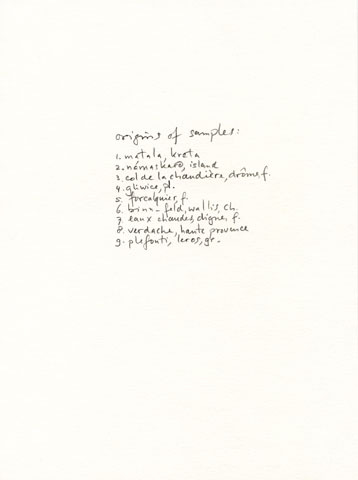 origins of samples:
1. matala, kreta
2. námaskarð, island
3. col de la chaudière, drôme f.
4. gliwice, pl.
5. forcalquier, f.
6. binn-feld, wallis, ch.
7. eaux chaudes, digne, f.
8. verdache, haute provence
9. plefouti, leros, gr.